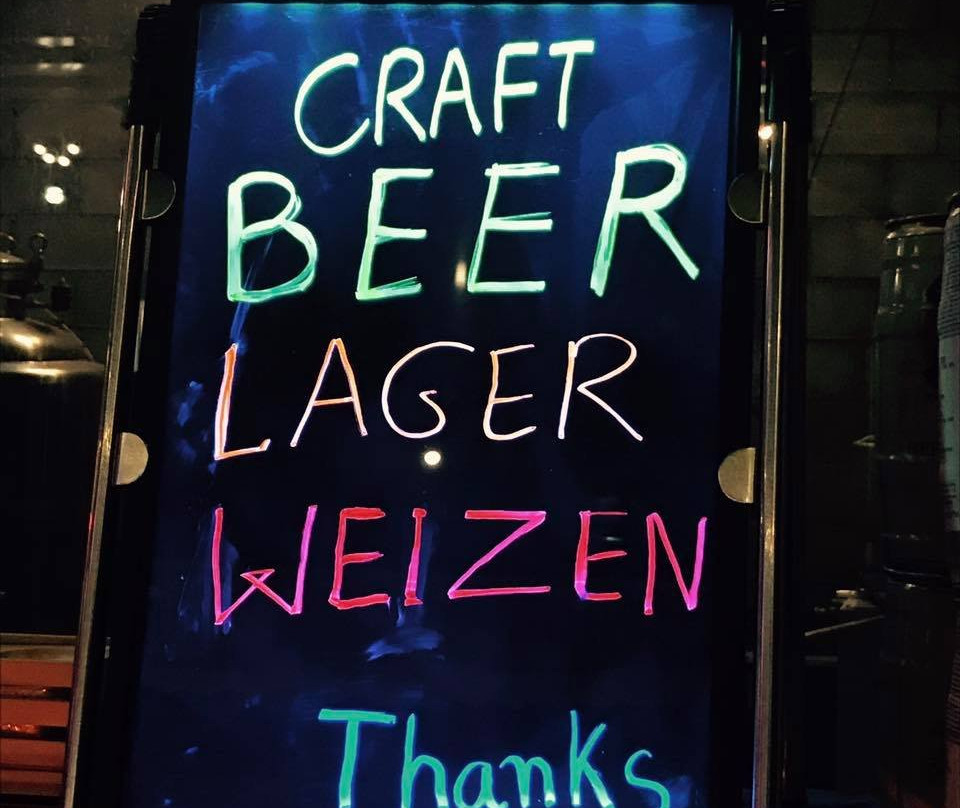 CRAFT
BEER
LAGER
WEIZEN
Thanks